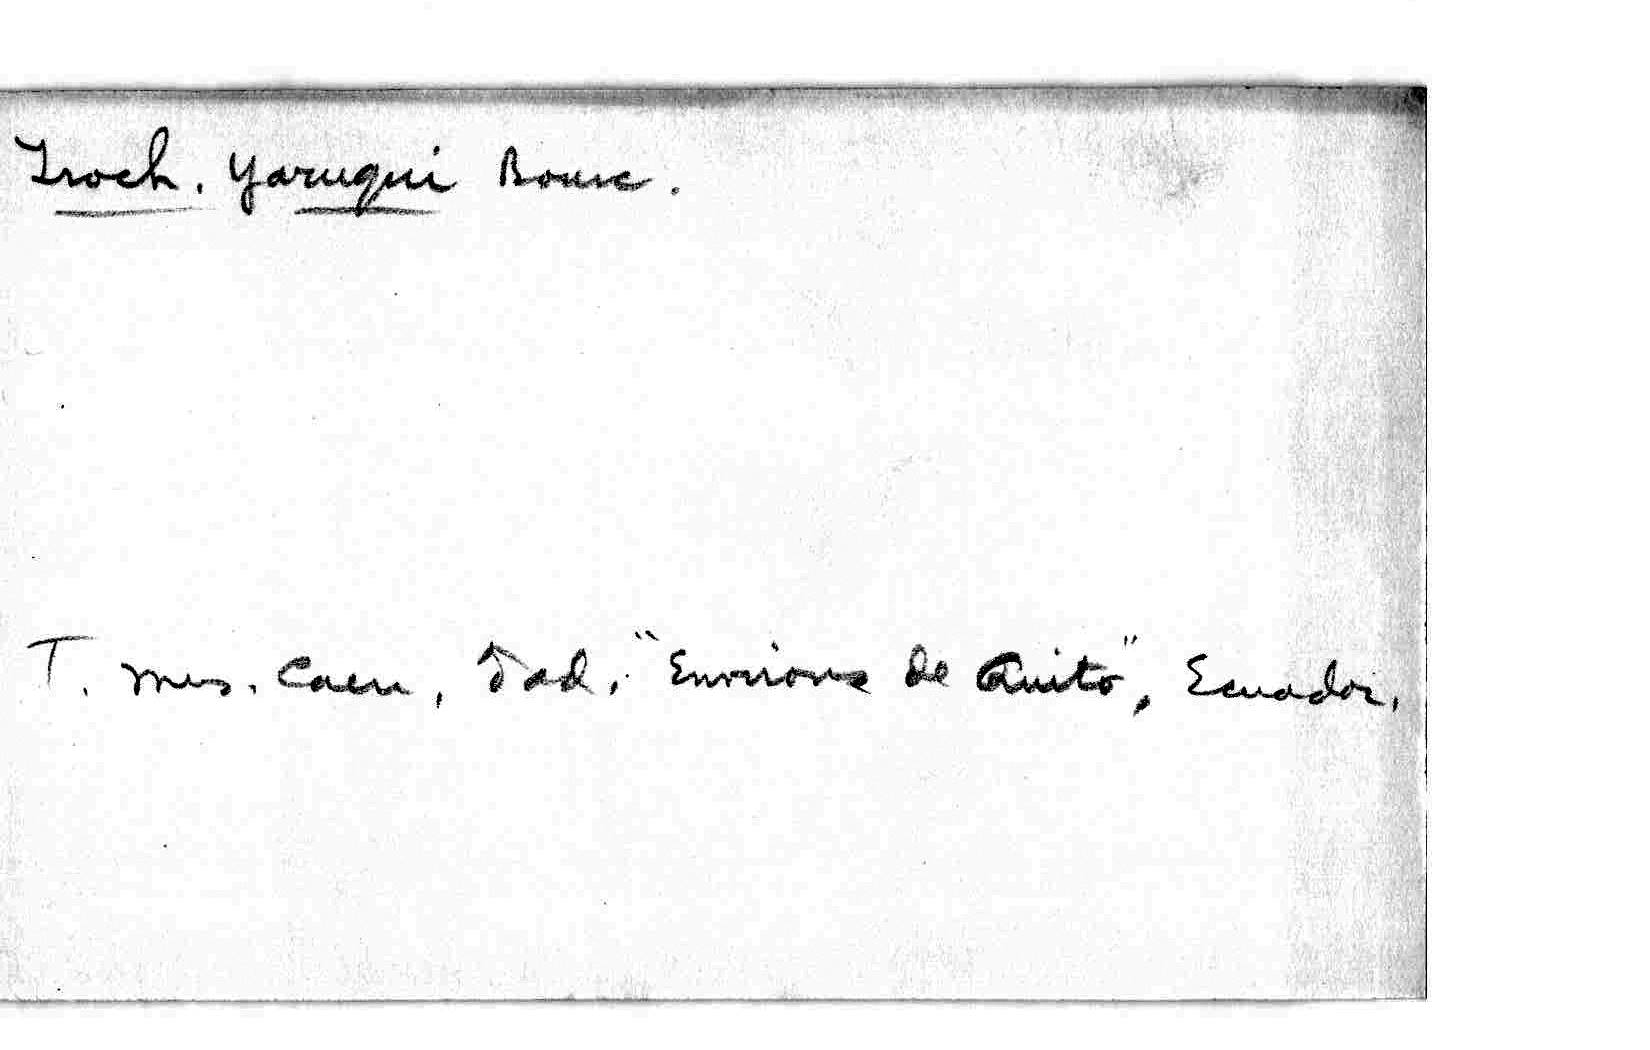 Troch. Yaruqui Bourc.
T. Mus. Caen, ♂ ad., "Environs de Quito", Ecuador.